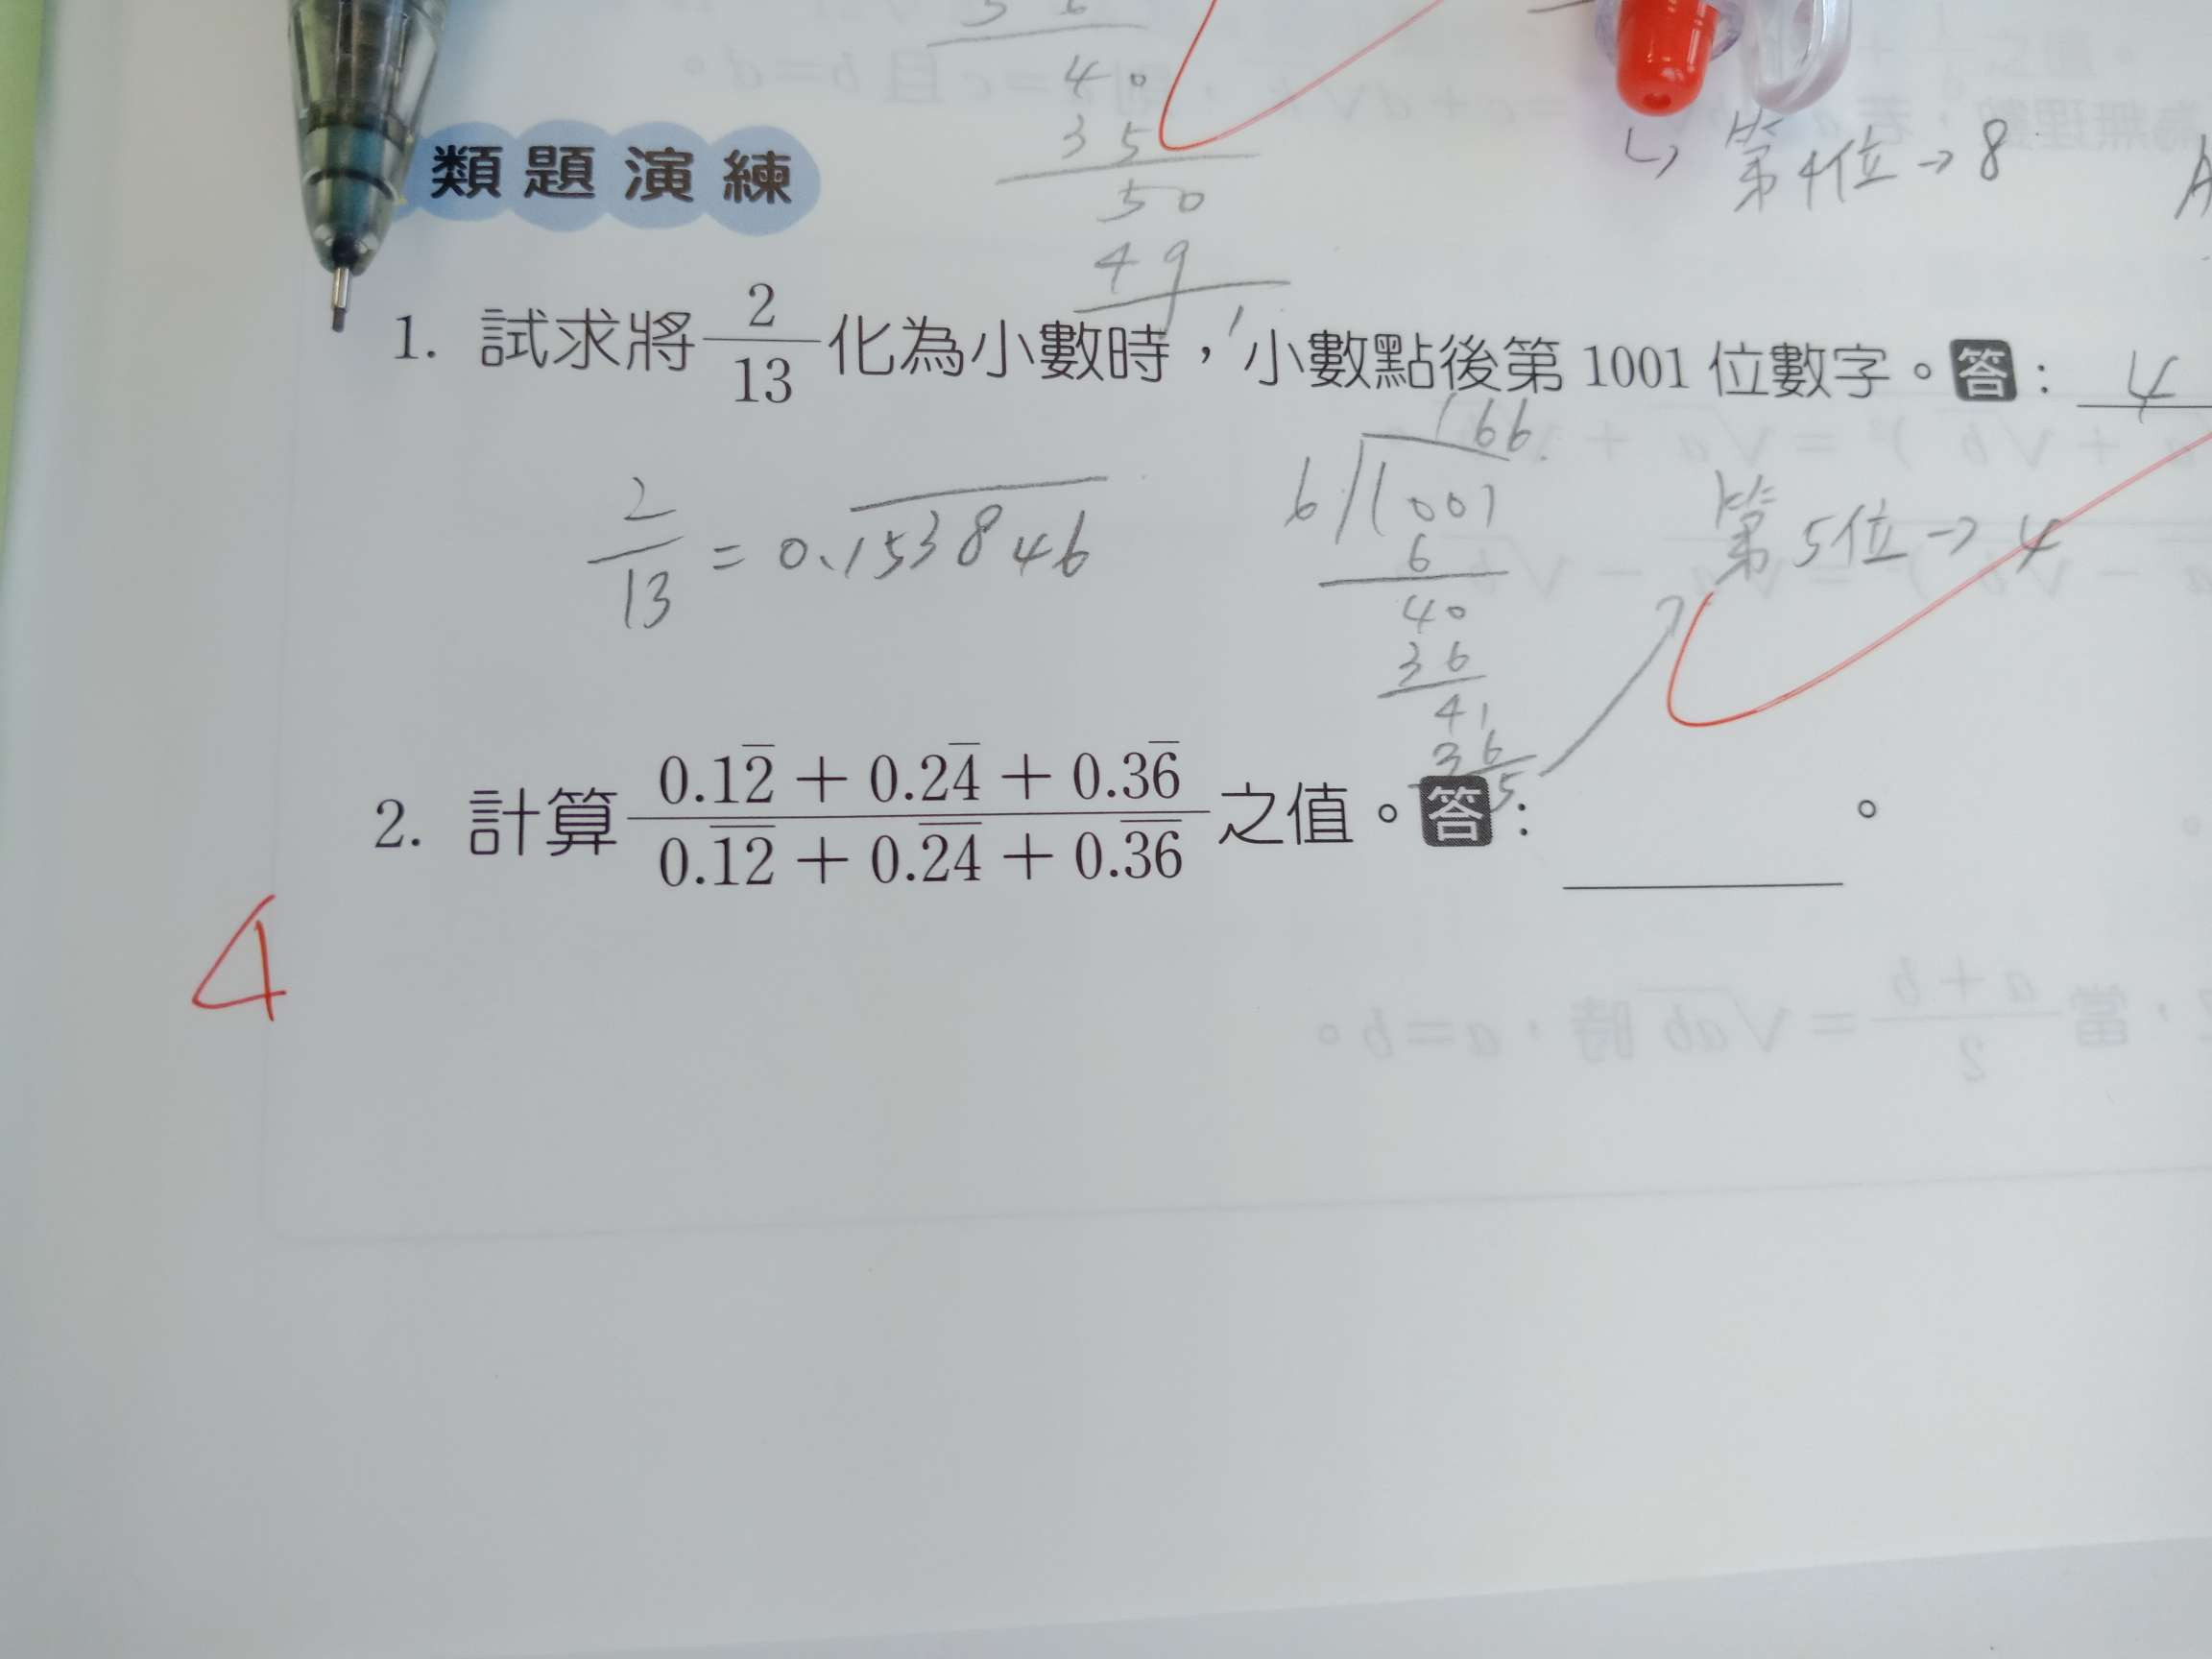 40
35
50
49
1
第4位→8
類題演練
1. 試求將 2/13 化為小數時，小數點後第 1001 位數字。答：4
2/13 = 0.\overline{153846}
166
6 1001
6
40
36
41
36
5
第5位→4
2. 計算 (0.1\overline{2} + 0.2\overline{4} + 0.3\overline{6})/(0.\overline{12} + 0.\overline{24} + 0.\overline{36}) 之值。答：＿＿＿。
4